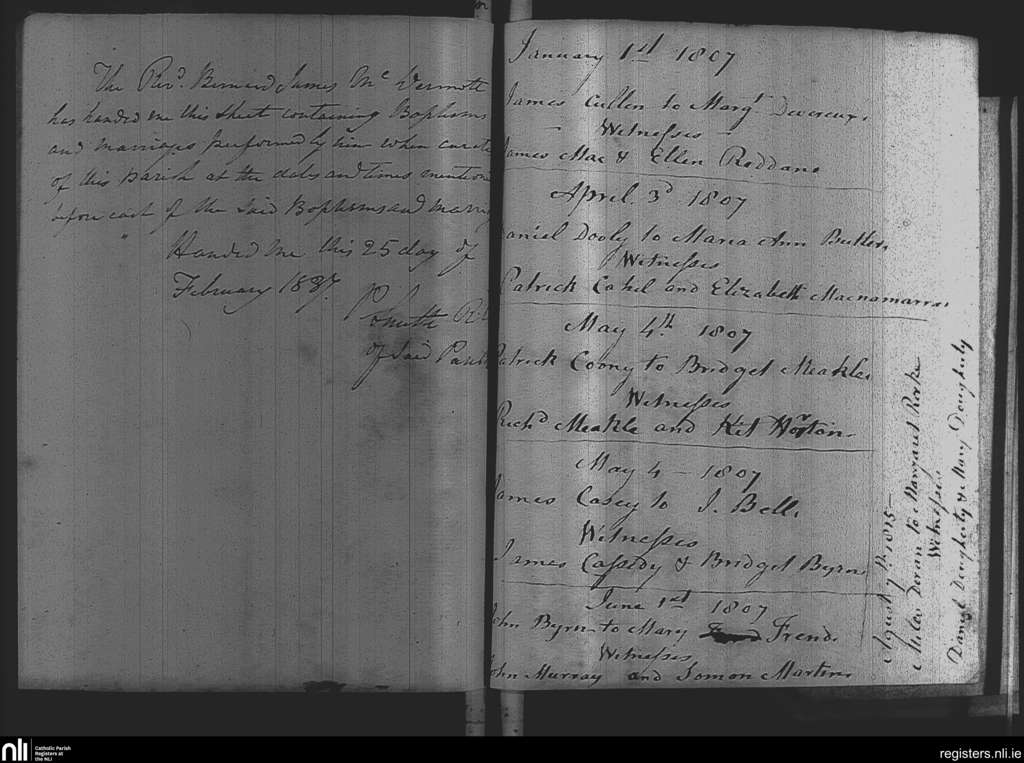 The Revd. Bernard James Mc Dermott
has handed me this sheet containing Baptisms
and marriages performed by him when curate
of this parish at the dates and times mention
before each of the said Baptisms and marri
Handed me this 25 day of
February 1837
P Smith
of Said Parish
January 1st 1807
James Cullen to Margt Devereux.
Witnesses
James Mac & Ellen Roddans
April. 3d 1807
Daniel Dooly to Maria Ann Butler.
Witnesses
Patrick Cahil and Elizabeth Macnamarra.
May 4th. 1807
Patrick Coony to Bridget Meakle.
Witnesses
Richd Meakle and Kit Horton.
May 4 - 1807
James Casey to J. Bell.
Witnesses
James Cassedy & Bridget Byrne
June 1st 1807
John Byrn to Mary Frend.
Witnesses
John Murray and Somon Martin.
Agust 7th. 1815-
Miles Doran to Margaret Rorke
Witnesses
Daniel Dougherty & Mary Dougherty
nli
Catholic Parish
Registers at
the NLI
registers.nli.ie